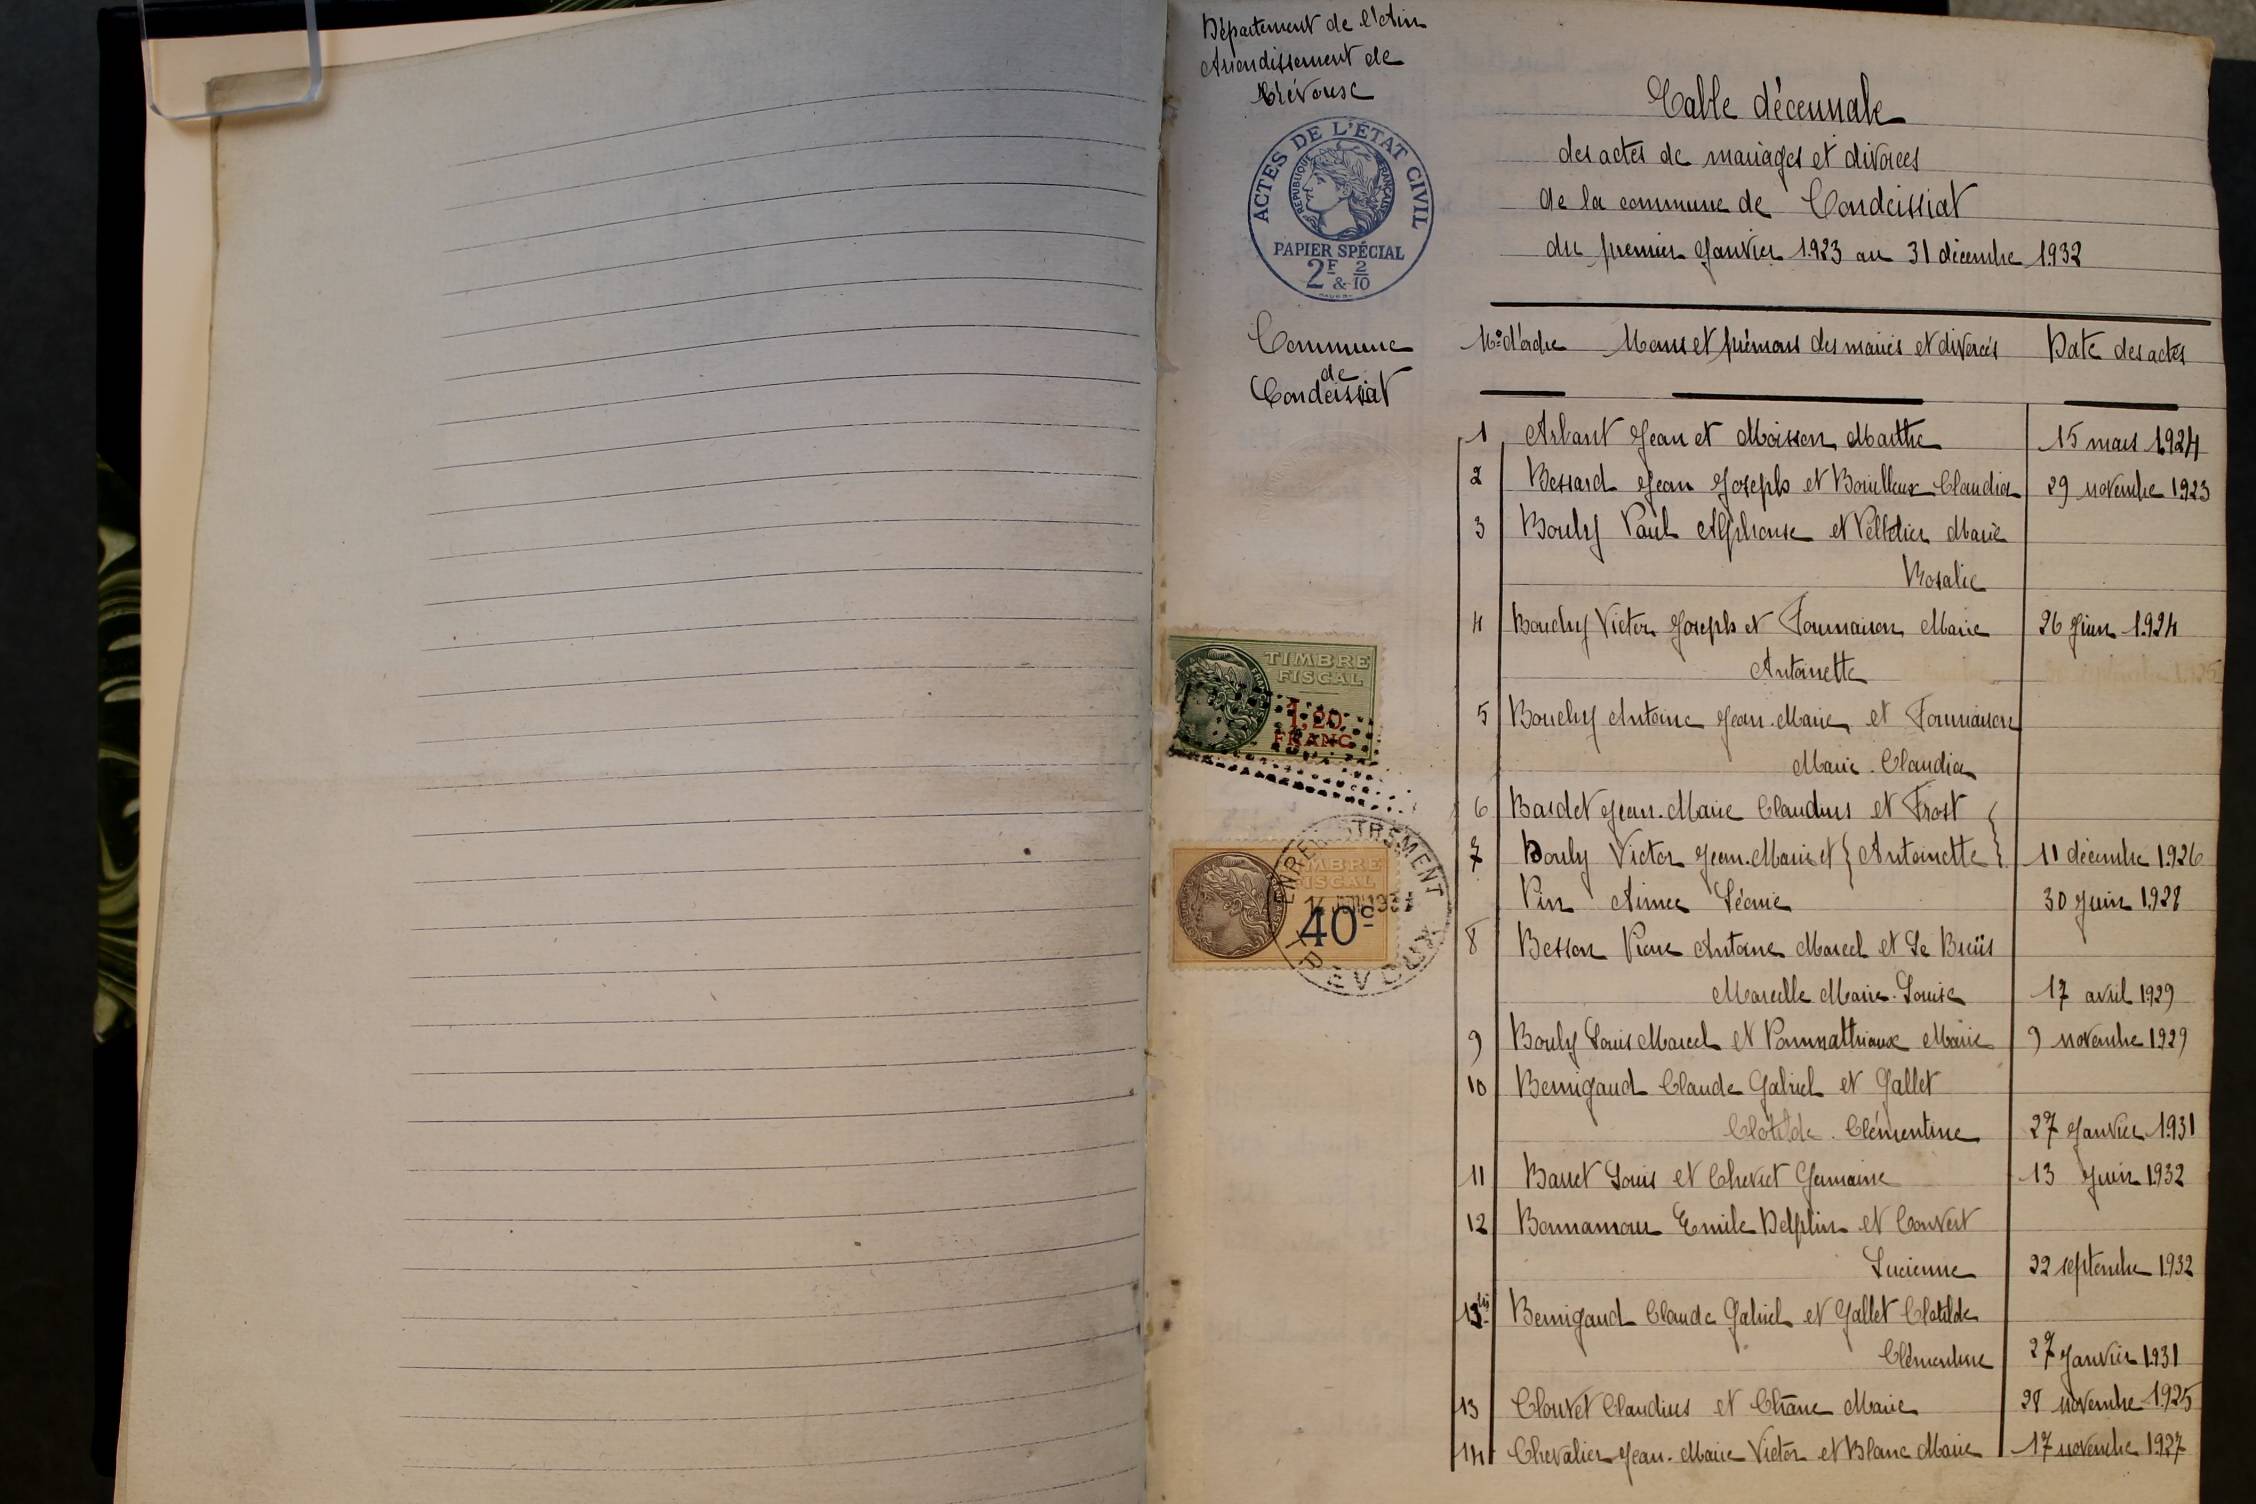 Département de l'Ain
Arrondissement de
Trévoux
ACTES DE L'ÉTAT CIVIL
RÉPUBLIQUE FRANÇAISE
PAPIER SPÉCIAL
2F & 2/10
Commune
de
Condeissiat
TIMBRE
FISCAL
1,20
FRANC
ENREGISTREMENT
TIMBRE
FISCAL
40c
TREVOUX
Table décennale
des actes de mariages et divorces
de la commune de Condeissiat
du premier Janvier 1923 au 31 décembre 1932
No d'ordre Noms et prénoms des mariés et divorcés Date des actes
1 Arbant Jean et Moisson Marthe 15 mars 1924
2 Bessard Jean Joseph et Bouilloux Claudia 29 novembre 1923
3 Bouly Paul Alphonse et Pelletier Marie
Rosalie
4 Bouchy Victor Joseph et Tournaison Marie 26 Juin 1924
Antoinette
5 Bouchy Antoine Jean-Marie et Tournaison
Marie-Claudia
6 Bardet Jean-Marie Claudius et Frost
7 Bouly Victor Jean-Marie et { Antoinette } 11 décembre 1926
Pin Aimée Léonie 30 Juin 1928
8 Besson Pierre Antoine Marcel et Le Bruïs
Marcelle Marie-Louise 17 avril 1929
9 Bouly Louis Marcel et Pommathiaux Marie 9 novembre 1929
10 Bernigaud Claude Gabriel et Gallet
Clotilde Clémentine 27 Janvier 1931
11 Barret Louis et Cheviet Germaine 13 Juin 1932
12 Bonnamour Emile Delphin et Convert
Lucienne 22 septembre 1932
bis Bernigaud Claude Gabriel et Gallet Clotilde
Clémentine 27 Janvier 1931
13 Clouvet Claudius et Chêne Marie 28 novembre 1925
14 Chevalier Jean-Marie Victor et Blanc Marie 17 novembre 1927